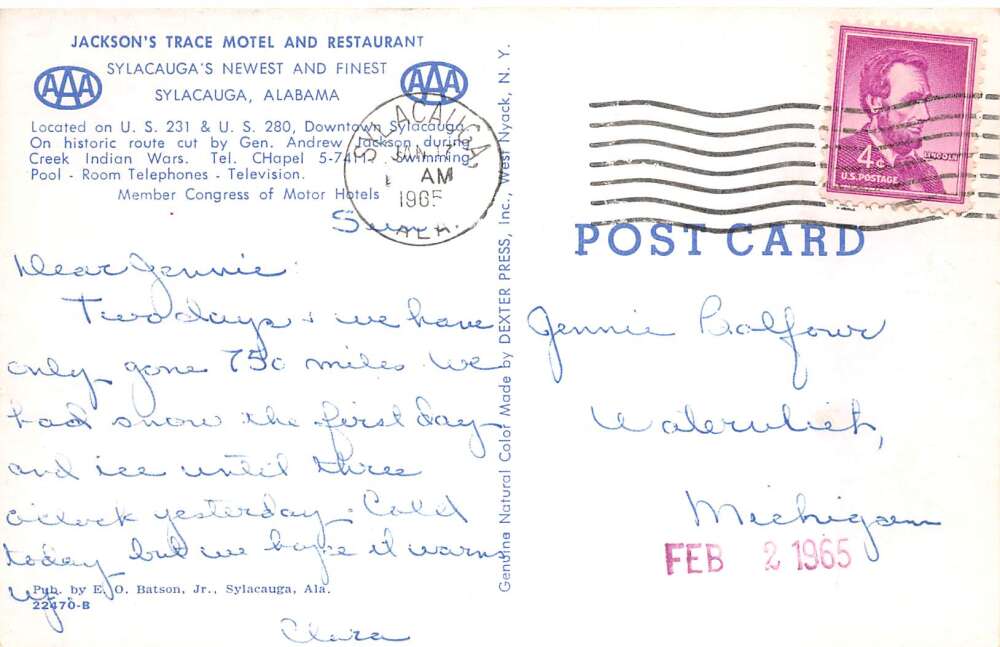 JACKSON'S TRACE MOTEL AND RESTAURANT
SYLACAUGA'S NEWEST AND FINEST
SYLACAUGA, ALABAMA
AAA
AAA
Located on U. S. 231 & U. S. 280, Downtown Sylacauga.
On historic route cut by Gen. Andrew Jackson during
Creek Indian Wars. Tel. CHapel 5-741 Swimming
Pool - Room Telephones - Television.
Member Congress of Motor Hotels
SYLACAUGA,
AM
1965
ALA.
Dear Jennie:
Two days + we have
only gone 750 miles. We
had snow the first day
and ice until three
o'clock yesterday. Cold
today but we hope it warms
up.
Clara
Pub. by E. O. Batson, Jr., Sylacauga, Ala.
22470-B
Genuine Natural Color Made by DEXTER PRESS, Inc., West Nyack, N. Y.
4¢
LINCOLN
U.S. POSTAGE
POST CARD
Jennie Balfour
Watervliet,
Michigan
FEB 2 1965